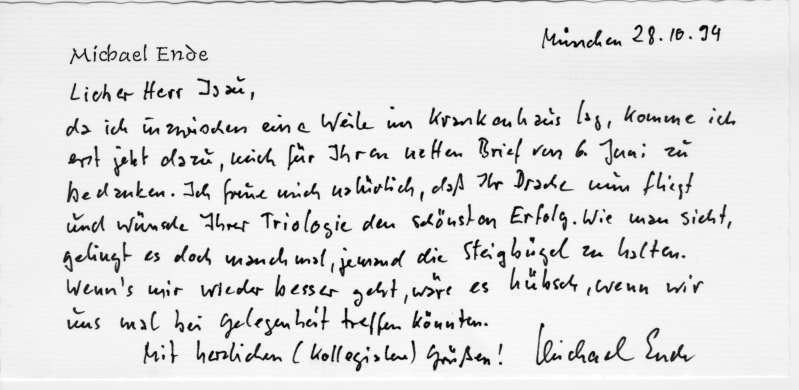 München 28.10.94
Michael Ende
Lieber Herr Isau,
da ich inzwischen eine Weile im Krankenhaus lag, komme ich
erst jetzt dazu, mich für Ihren netten Brief vom 6. Juni zu
bedanken. Ich freue mich natürlich, daß Ihr Drache nun fliegt
und wünsche Ihrer Triologie den schönsten Erfolg. Wie man sieht,
gelingt es doch manchmal, jemand die Steigbügel zu halten.
Wenn's mir wieder besser geht, wäre es hübsch, wenn wir
uns mal bei Gelegenheit treffen könnten.
Mit herzlichen (kollegialen) Grüßen! Michael Ende